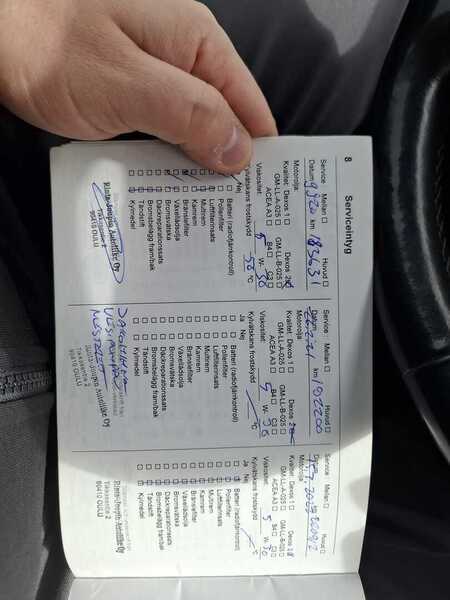 8 Serviceintyg
Service: Mellan ☐ Huvud ☐
Datum 9.9.20 km 183631
Motorolja:
Kvalitet: Dexos 1 ☐ Dexos 2 ☒
GM-LL-A-025 ☐ GM-LL-B-025 ☐
ACEA A3 ☐ B4 ☐ C3 ☐
Viskositet: 5 W- 30
Kylvätskans fryskydd °C
Nej
☐ Batteri (radiofjärrkontroll)
☐ Pollenfilter
☐ Luftfilterinsats
☐ Multirem
☐ Kamrem
☐ Bränslefilter
☐ Växellådsolja
☐ Bromsvätska
☐ Däckreparationssats
☐ Bromsbelägg fram/bak
☐ Tändstift
☐ Kylmedel
Rinta-Jouppi Autoliike Oy
90410 OULU
Service: Mellan ☐ Huvud ☐
Datum km
Motorolja:
Kvalitet: Dexos 1 ☐ Dexos 2
GM-LL-A-025 ☐ GM-LL-B-025 ☐
ACEA A3 ☐ B4 ☐ C3 ☐
Viskositet: 5 W- 30
Kylvätskans fryskydd °C
Ja Nej
☐ Batteri (radiofjärrkontroll)
☐ Pollenfilter
☐ Luftfilterinsats
☐ Multirem
☐ Kamrem
☐ Bränslefilter
☐ Växellådsolja
☐ Bromsvätska
☐ Däckreparationssats
☐ Bromsbelägg fram/bak
☐ Tändstift
☐ Kylmedel
Rinta-Jouppi Autoliike Oy
90410 OULU
Service: Mellan ☐ Huvud ☐
Datum
Motorolja:
Kvalitet: Dexos 1 ☐ Dexos 2
GM-LL-A-025 ☐ GM-LL-B-025 ☐
ACEA A3 ☐ B4 ☐ C3 ☐
Viskositet: 5 W- 30
Kylvätskans fryskydd °C
Ja Nej
☐ Batteri (radiofjärrkontroll)
☐ Pollenfilter
☐ Luftfilterinsats
☐ Multirem
☐ Kamrem
☐ Bränslefilter
☐ Växellådsolja
☐ Bromsvätska
☐ Däckreparationssats
☐ Bromsbelägg fram/bak
☐ Tändstift
☐ Kylmedel
Rinta-Jouppi Autoliike Oy
90410 OULU